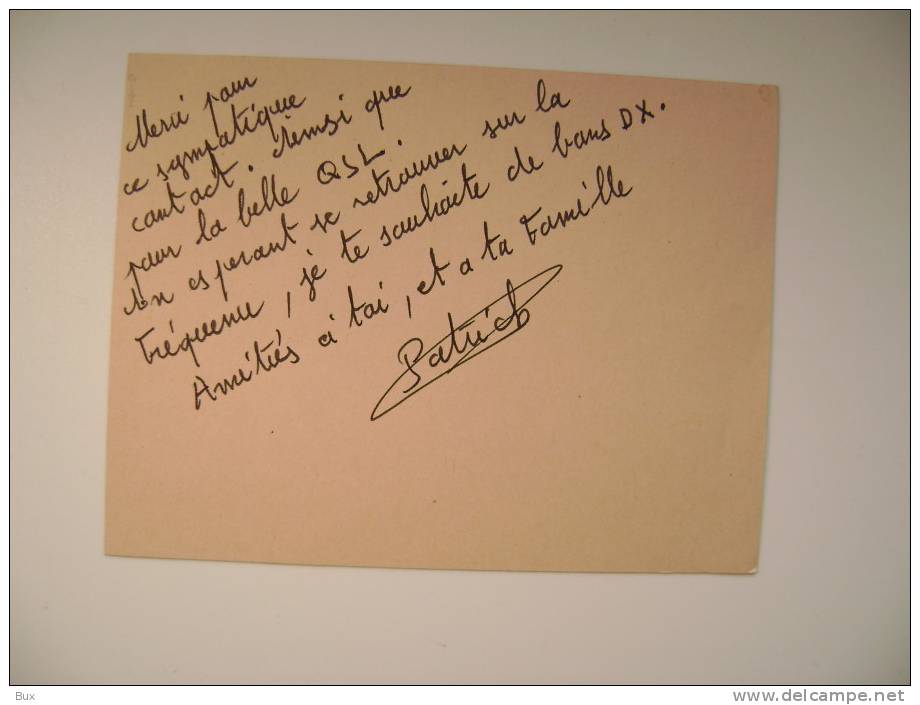 Merci pour
ce sympatique
contact. Ainsi que
pour la belle QSL.
En esperant se retrouver sur la
Fréquence, je te souhaite de bons DX.
Amitiés à toi, et a ta Famille
Patrick
Bux
www.delcampe.net